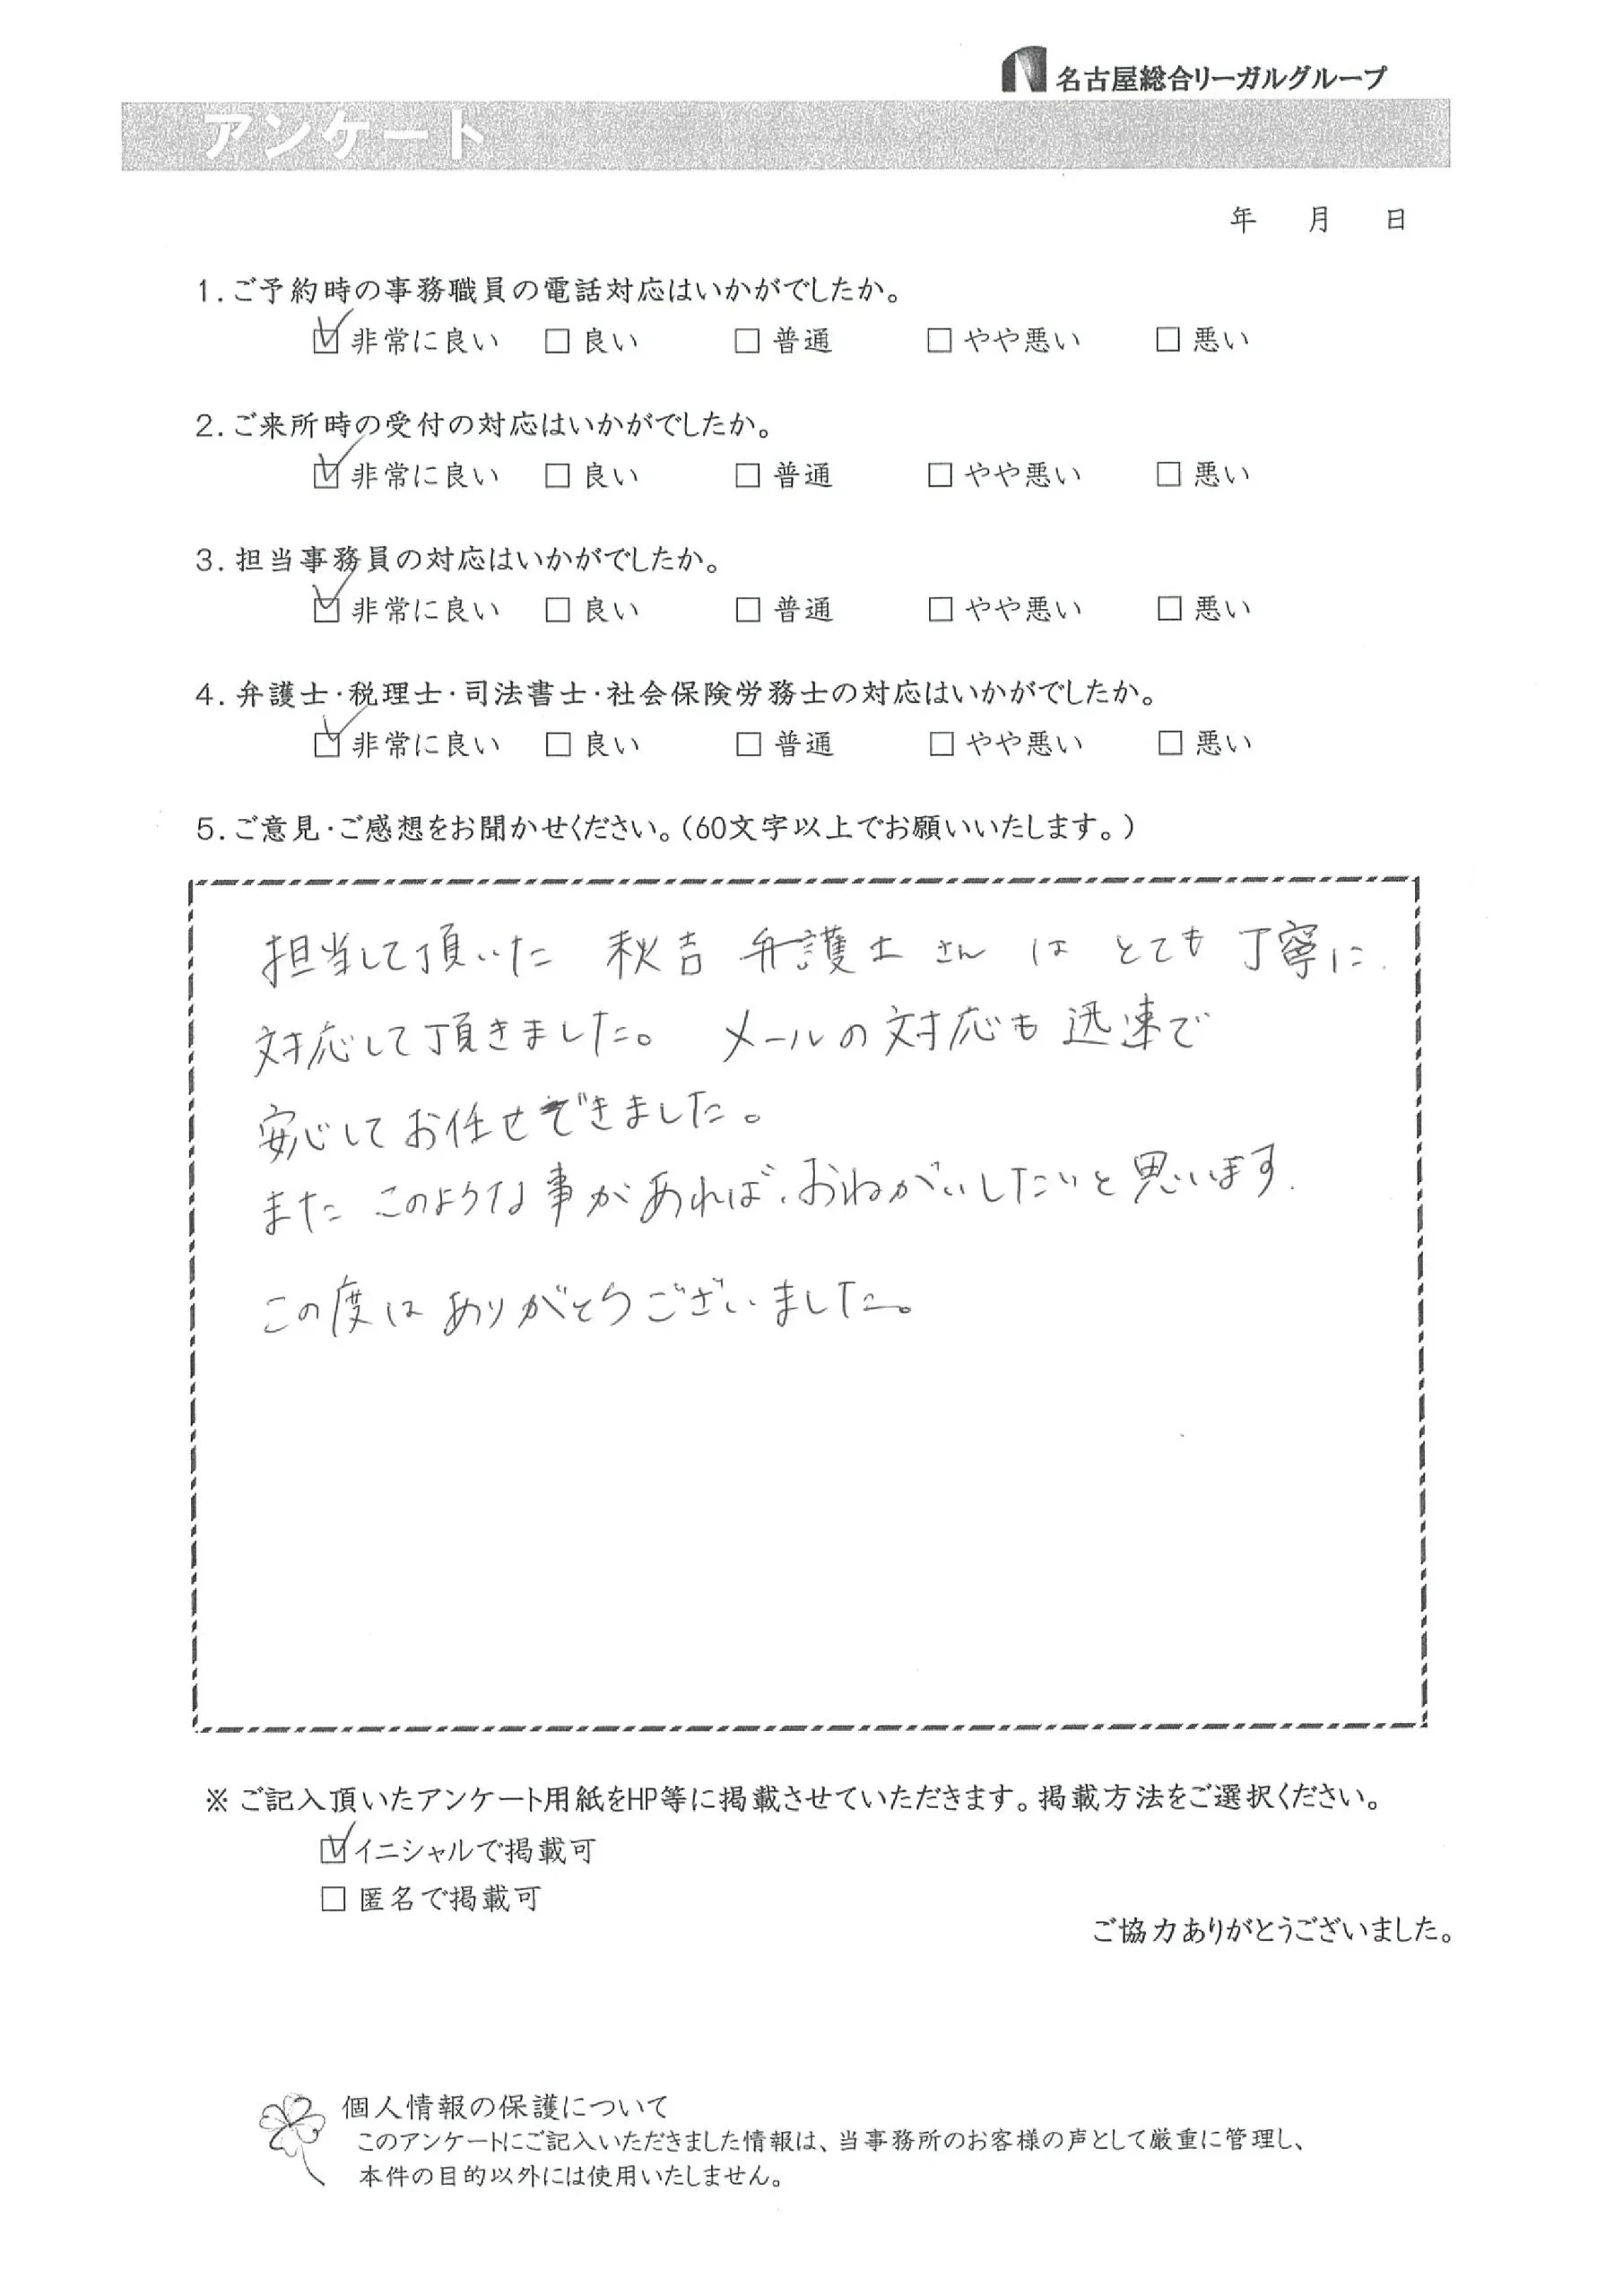 名古屋総合リーガルグループ
アンケート
年 月 日
1.ご予約時の事務職員の電話対応はいかがでしたか。
☑非常に良い □良い □普通 □やや悪い □悪い
2.ご来所時の受付の対応はいかがでしたか。
☑非常に良い □良い □普通 □やや悪い □悪い
3.担当事務員の対応はいかがでしたか。
☑非常に良い □良い □普通 □やや悪い □悪い
4.弁護士・税理士・司法書士・社会保険労務士の対応はいかがでしたか。
☑非常に良い □良い □普通 □やや悪い □悪い
5.ご意見・ご感想をお聞かせください。(60文字以上でお願いいたします。)
担当して頂いた 秋吉 弁護士さん は とても 丁寧に
対応して頂きました。 メールの対応も迅速で
安心してお任せできました。
また このような事があれば、おねがいしたいと思います.
この度は ありがとうございました。
※ ご記入頂いたアンケート用紙をHP等に掲載させていただきます。掲載方法をご選択ください。
☑イニシャルで掲載可
□ 匿名で掲載可
ご協力ありがとうございました。
個人情報の保護について
このアンケートにご記入いただきました情報は、当事務所のお客様の声として厳重に管理し、
本件の目的以外には使用いたしません。